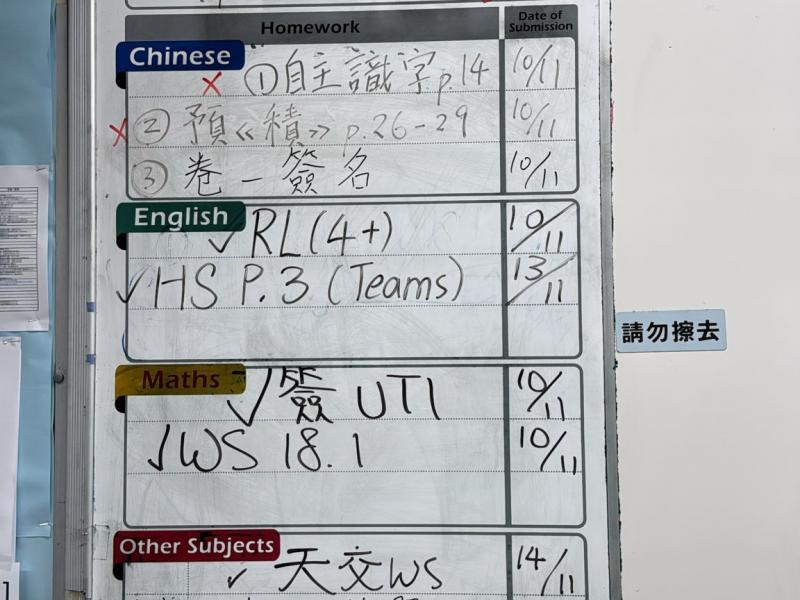 Homework
Date of Submission
Chinese
① 自主識字 p.14 10/11
② 預《積》 p.26-29 10/11
③ 卷一簽名 10/11
English
✓ RL(4+) 10/11
✓ HS P.3 (Teams) 13/11
請勿擦去
Maths
✓ 簽 UT1 10/11
✓ WS 18.1 10/11
Other Subjects
✓ 天交WS 14/11